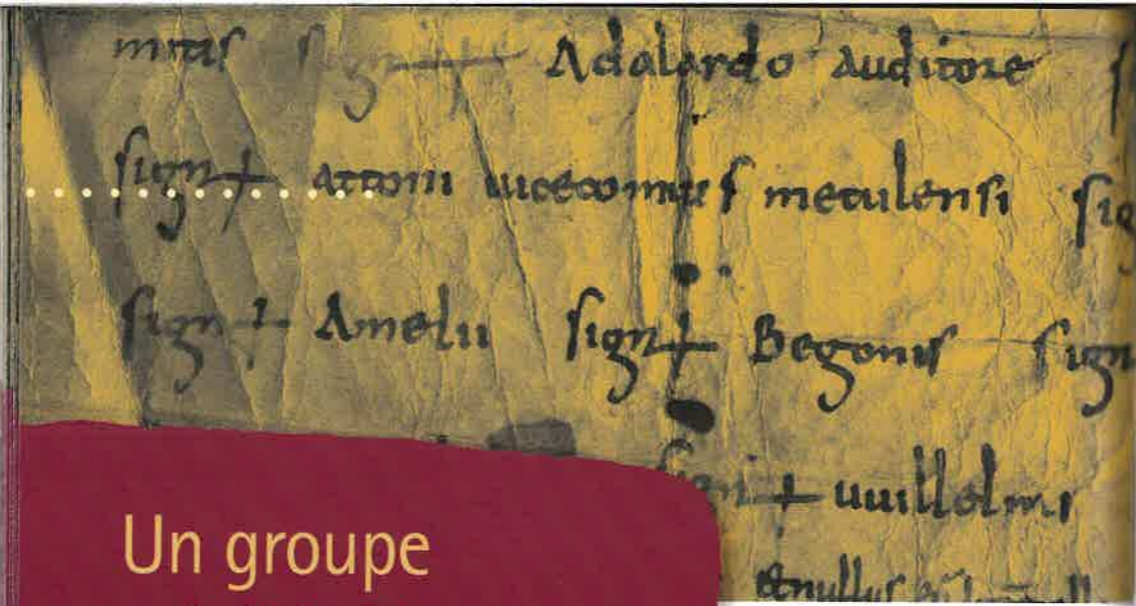 sign + Adalardo auditore
sign + attoni vicecomitis metulensi sig
sign + Amelii sign + Begonis sign
sign + uuillelmi
Un groupe